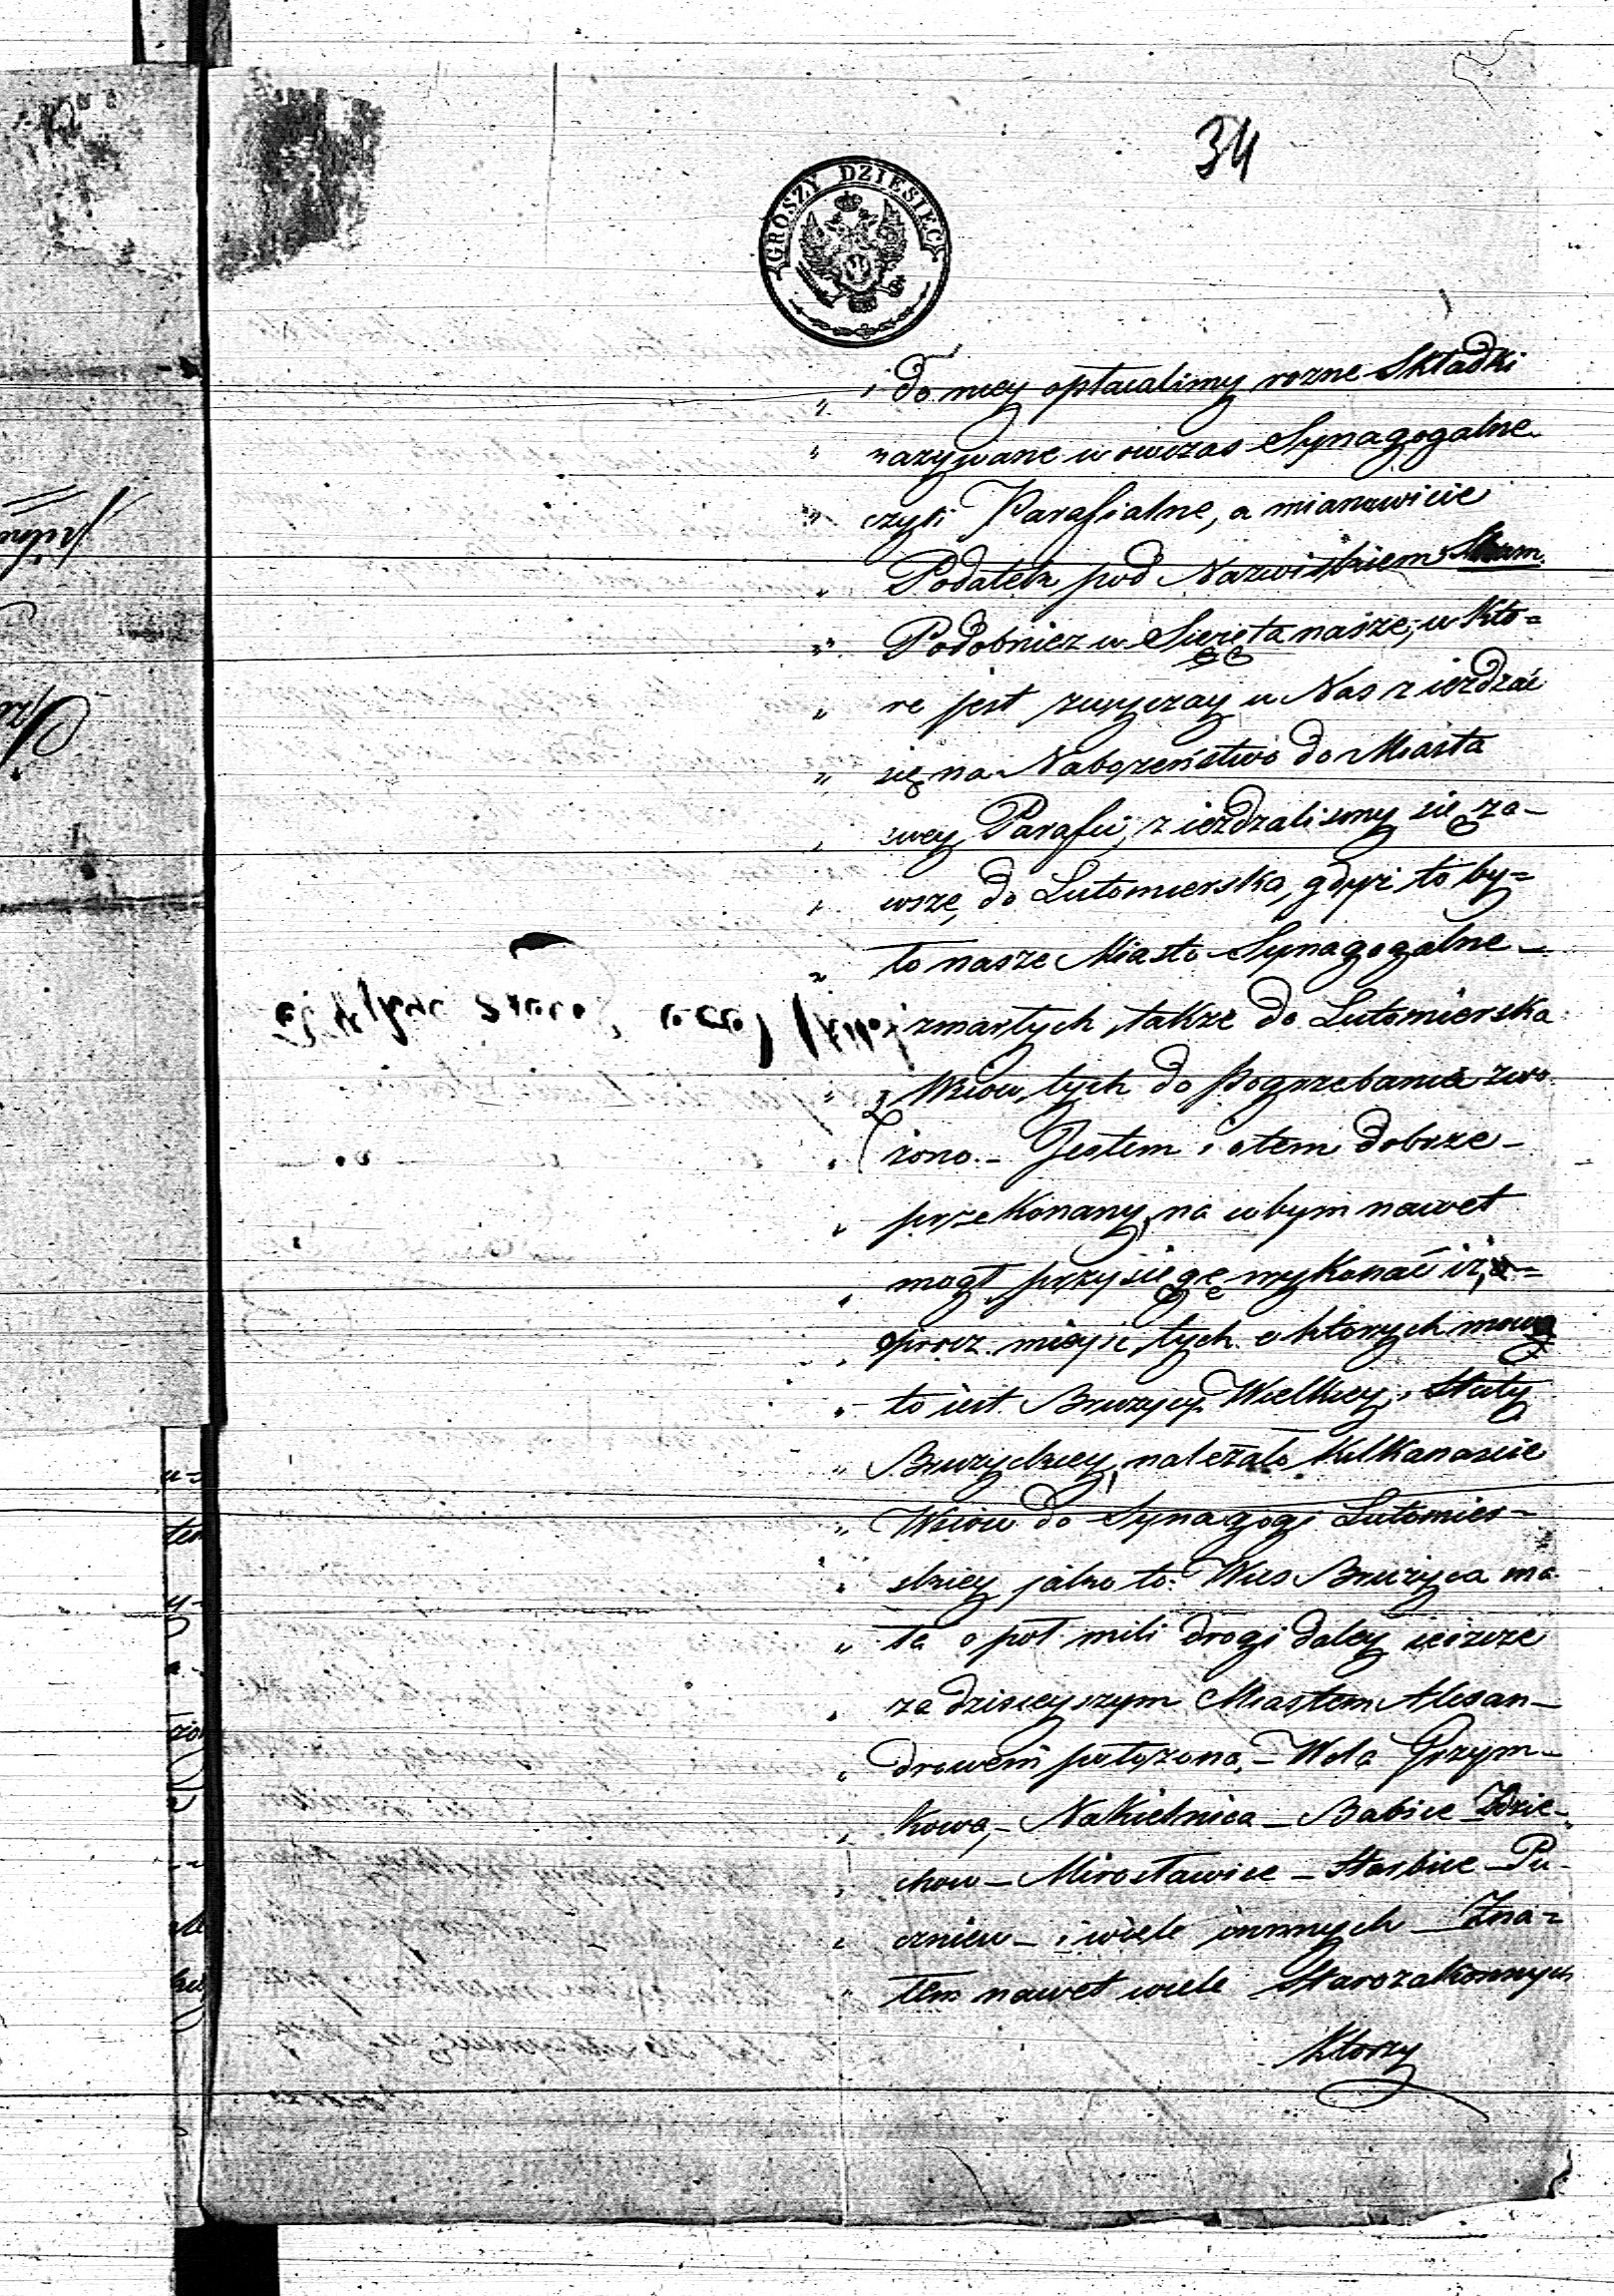 34
GROSZY DZIESIĘĆ
i do niey opłacalimy rozne Składki
nazywane w owczas Synagogalne
czyli Parafialne, a mianowicie
Podatek pod Nazwiskiem
Podobniez w Swięta nasze, w Kto=
re jest zwyczay u Nas ziezdzać
się na Nabozeństwo do Miasta
swey Parafii, ziezdzalismy się za-
wsze, do Lutomierska, gdyz to by=
ło nasze Miasto Synagogalne -
zmarłych, takze do Lutomierska
z Wsiow tych do pogrzebania zwo
zono. - Jestem i otem dobrze -
przekonany, na co bym nawet
mogł przysięgę wykonać iz, o=
procz mieysc tych o ktorych mowa
to iest Bruzycy Wielkiey, i Starey
Bruzyckiey, należało kilkanascie
Wsiow do Synagogi Lutomier=
skiey jako to: Wies Bruzyca ma
ła o poł mili drogi daley ieszcze
za dzisieyszym Miastem Alexan-
drowem połozona, - Wola Grzym-
kowa, - Nakielnica - Babice Zdzie-
chow - Mirosławice - Starbice - Pu-
czniew - i wiele innnych Zna=
łem nawet wiele Starozakonnych
Ktorzy